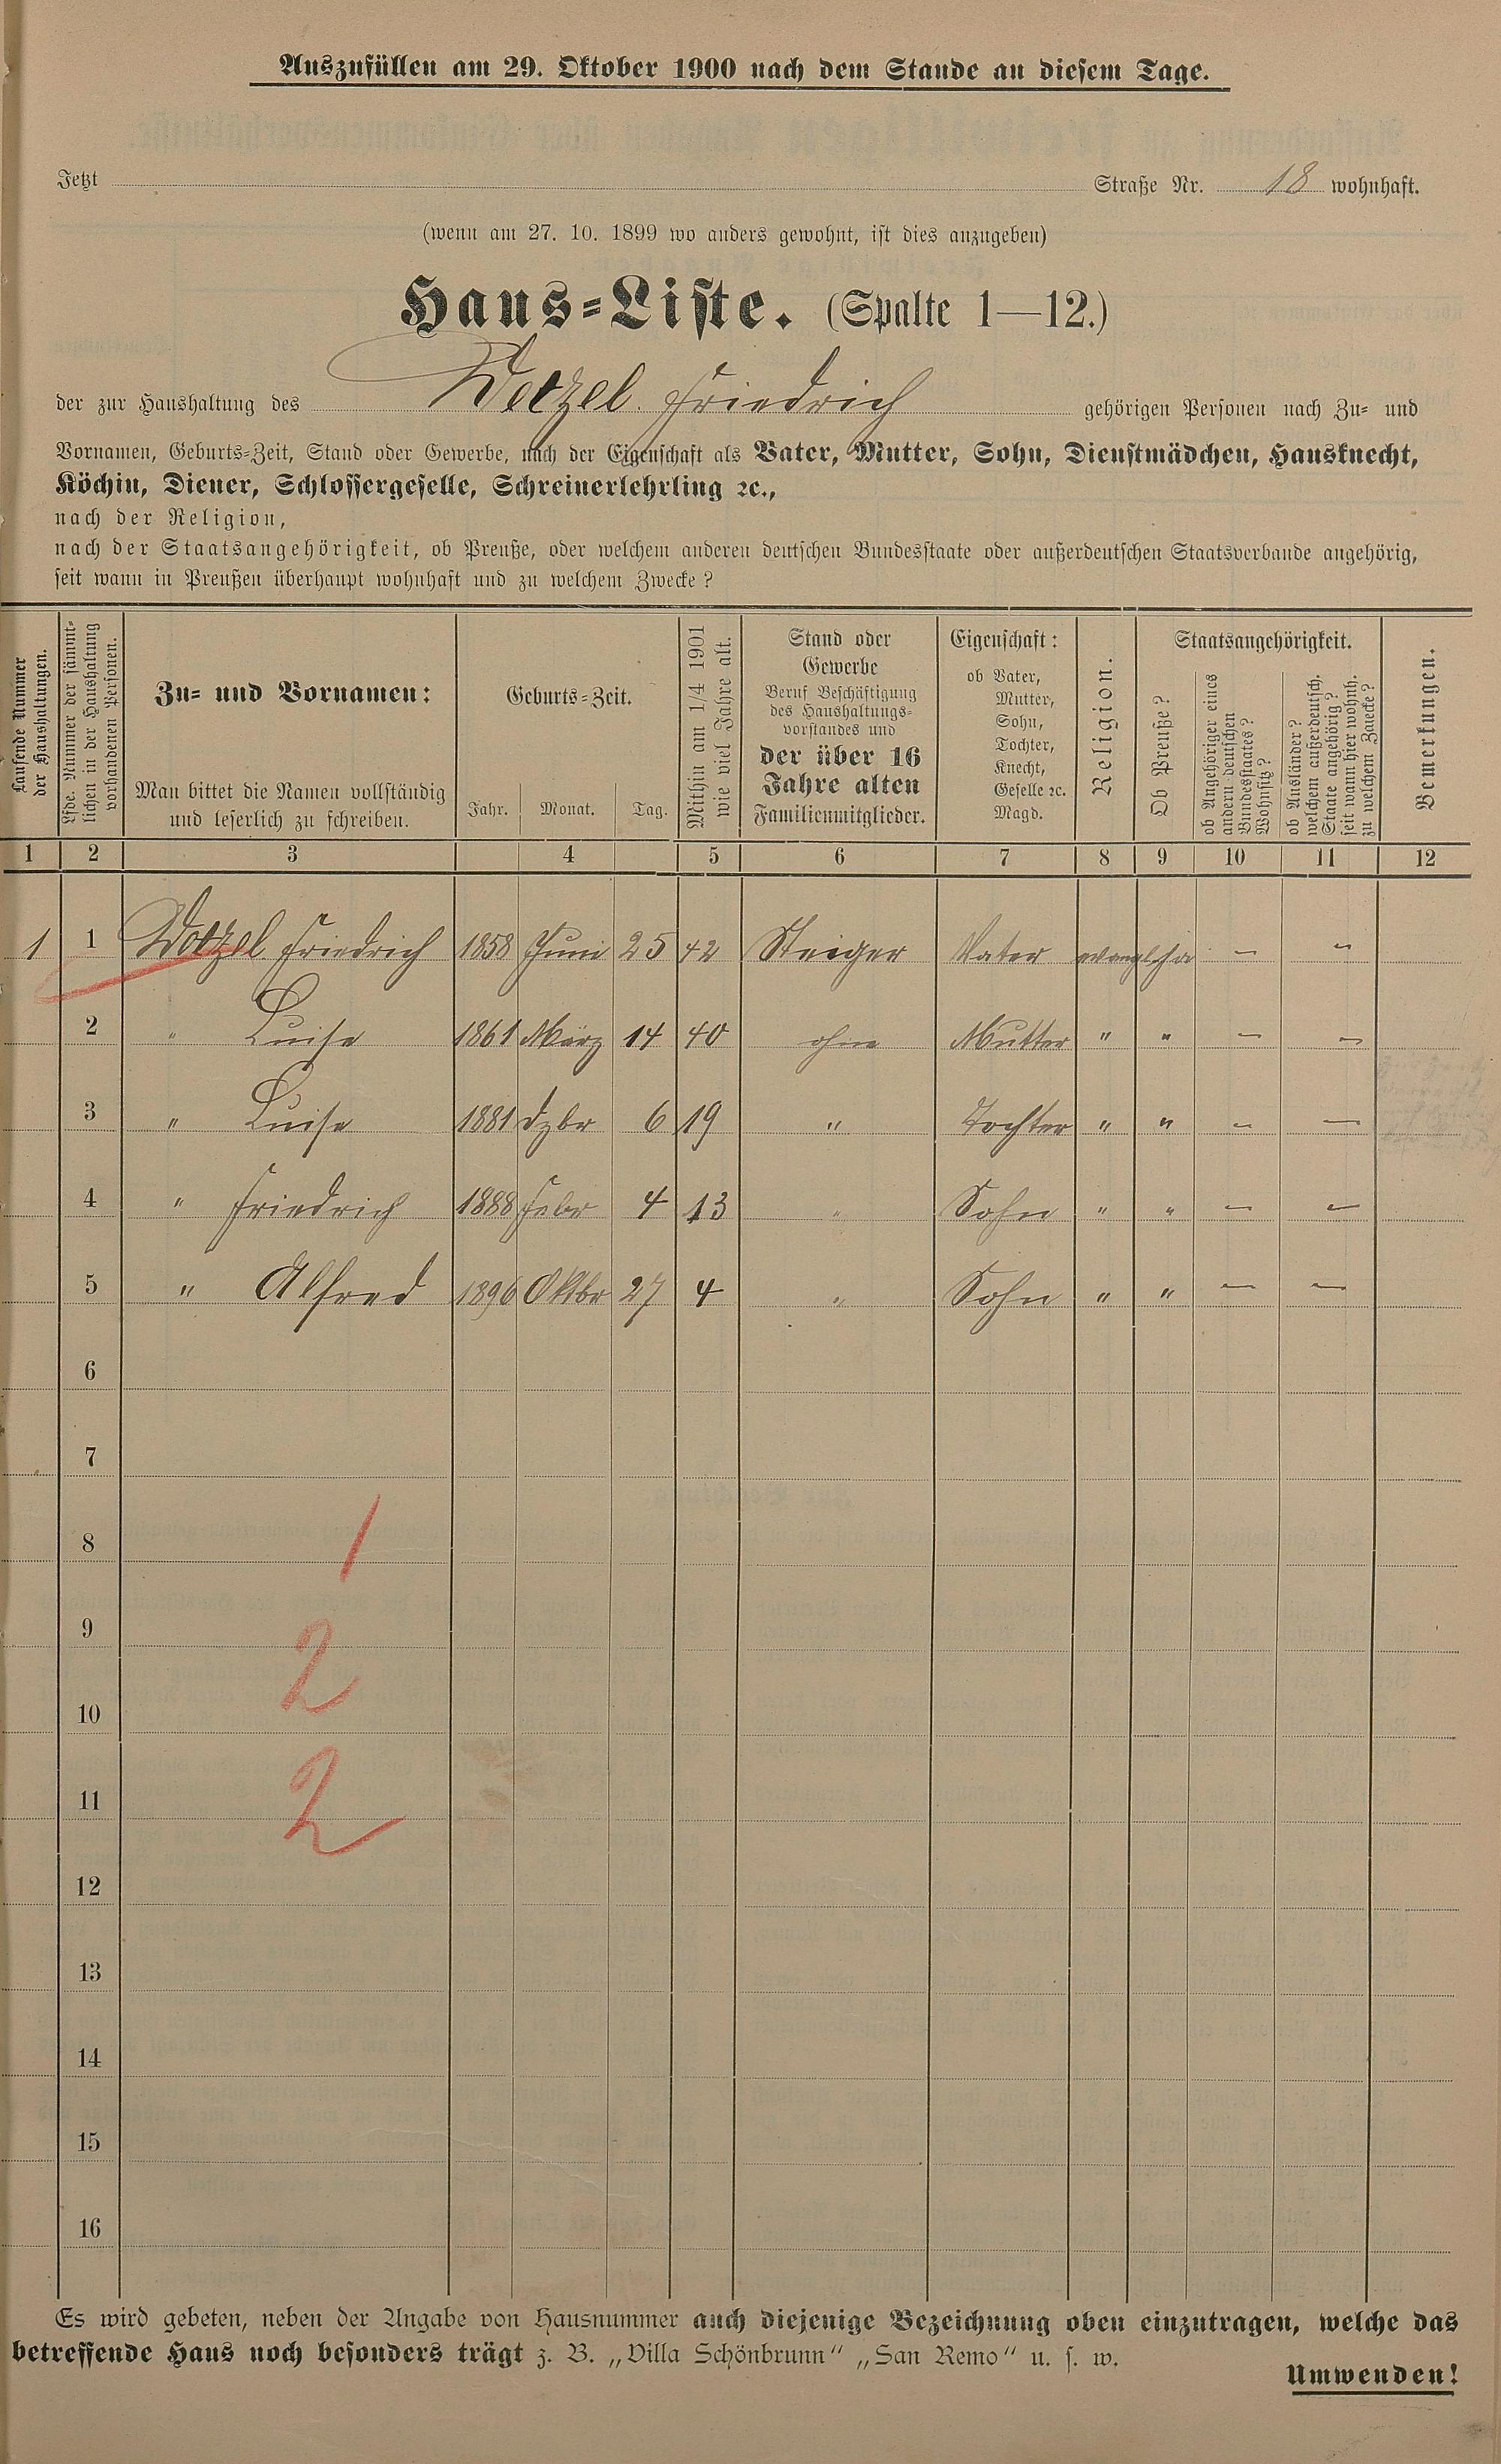 Auszufüllen am 29. Oktober 1900 nach dem Stande an diesem Tage.
Jetzt Straße Nr. 18 wohnhaft.
(wenn am 27. 10. 1899 wo anders gewohnt, ist dies anzugeben)
Haus-Liste. (Spalte 1—12.)
der zur Haushaltung des Wetzel Friedrich gehörigen Personen nach Zu- und
Vornamen, Geburts-Zeit, Stand oder Gewerbe, nach der Eigenschaft als Vater, Mutter, Sohn, Dienstmädchen, Hausknecht,
Köchin, Diener, Schlossergeselle, Schreinerlehrling ꝛc.,
nach der Religion,
nach der Staatsangehörigkeit, ob Preuße, oder welchem anderen deutschen Bundesstaate oder außerdeutschen Staatsverbande angehörig,
seit wann in Preußen überhaupt wohnhaft und zu welchem Zwecke?
Laufende Nummer
der Haushaltungen.
Lfde. Nummer der sämmt-
lichen in der Haushaltung
vorhandenen Personen.
Zu- und Vornamen:
Man bittet die Namen vollständig
und leserlich zu schreiben.
Geburts-Zeit.
Jahr. Monat. Tag.
Mithin am 1/4 1901
wie viel Jahre alt.
Stand oder
Gewerbe
Beruf Beschäftigung
des Haushaltungs-
vorstandes und
der über 16
Jahre alten
Familienmitglieder.
Eigenschaft:
ob Vater,
Mutter,
Sohn,
Tochter,
Knecht,
Geselle ꝛc.
Magd.
Religion.
Staatsangehörigkeit.
Ob Preuße?
ob Angehöriger eines
andern deutschen
Bundesstaates?
Wohnsitz?
ob Ausländer?
welchem außerdeutsch.
Staate angehörig?
seit wann hier wohnh.
zu welchem Zwecke?
Bemerkungen.
1 2 3 4 5 6 7 8 9 10 11 12
1 1 Wetzel Friedrich 1858 Juni 25 42 Steiger Vater evangl. ja — —
2 " Luise 1861 März 14 40 ohne Mutter " " — —
3 " Luise 1881 Dzbr 6 19 " Tochter " " — —
4 " Friedrich 1888 Febr 4 13 " Sohn " " — —
5 " Alfred 1896 Oktbr 27 4 " Sohn " " — —
6
7
8 1
9 2
10
11 2
12
13
14
15
16
Es wird gebeten, neben der Angabe von Hausnummer auch diejenige Bezeichnung oben einzutragen, welche das
betreffende Haus noch besonders trägt z. B. „Villa Schönbrunn" „San Remo" u. s. w.
Umwenden!